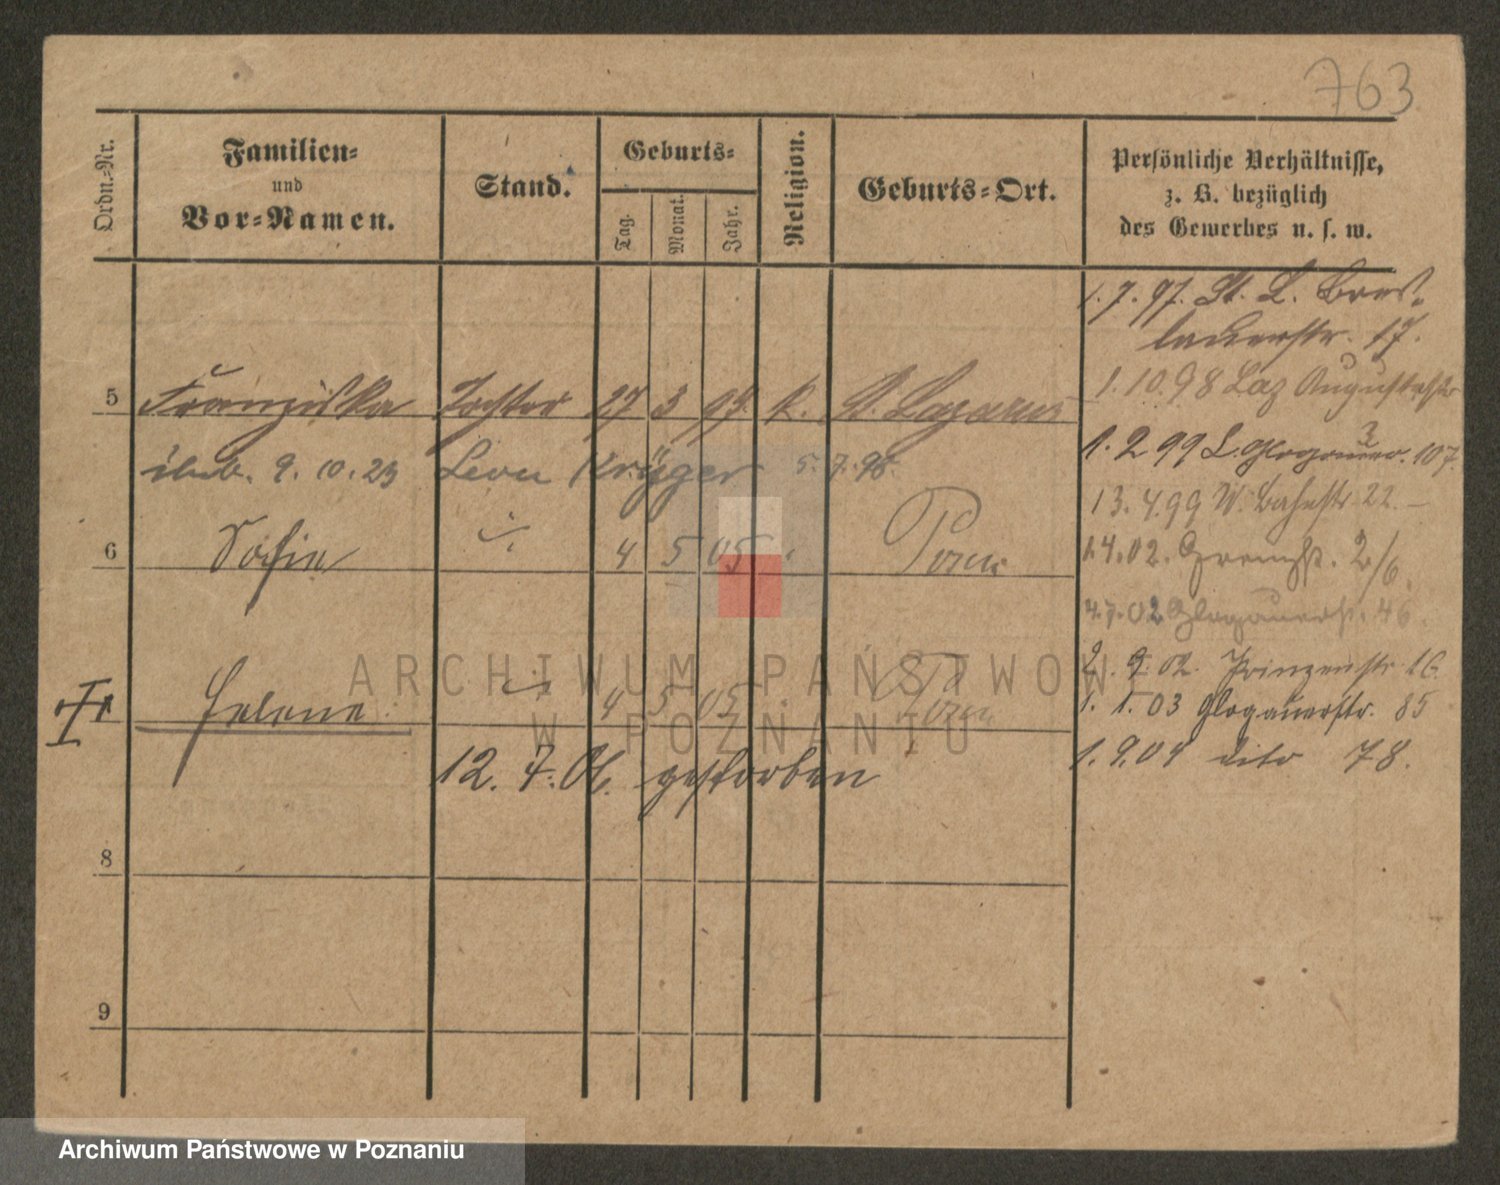 763
Ordn.-Nr.
Familien-
und
Vor-Namen.
Stand.
Geburts-
Tag.
Monat.
Jahr.
Religion.
Geburts-Ort.
Persönliche Verhältnisse,
z. B. bezüglich
des Gewerbes u. s. w.
1.7.97. St. L. Bres-
lauerstr. 17.
5 Franziska Tochter 27 3 97. k. St. Lazarus
1.10.98 Laz Augustastr
1.2 99 L. Glogauer. 107
9.10.23 Leon Krüger 5.7.98.
13.4.99 W. Bahnstr 22.
6 Sofie 4 5 05 Posen
1.4.02. Grenzstr. 2/6
4.7.02 Glogauerstr. 46.
2.9.02. Prinzenstr 16
Helene 4 5 05 Posen
1.1.03 Glogauerstr. 85
12.7.06. gestorben
1.9.04 dito 78.
8
9
ARCHIWUM PAŃSTWOWE
W POZNANIU
Archiwum Państwowe w Poznaniu